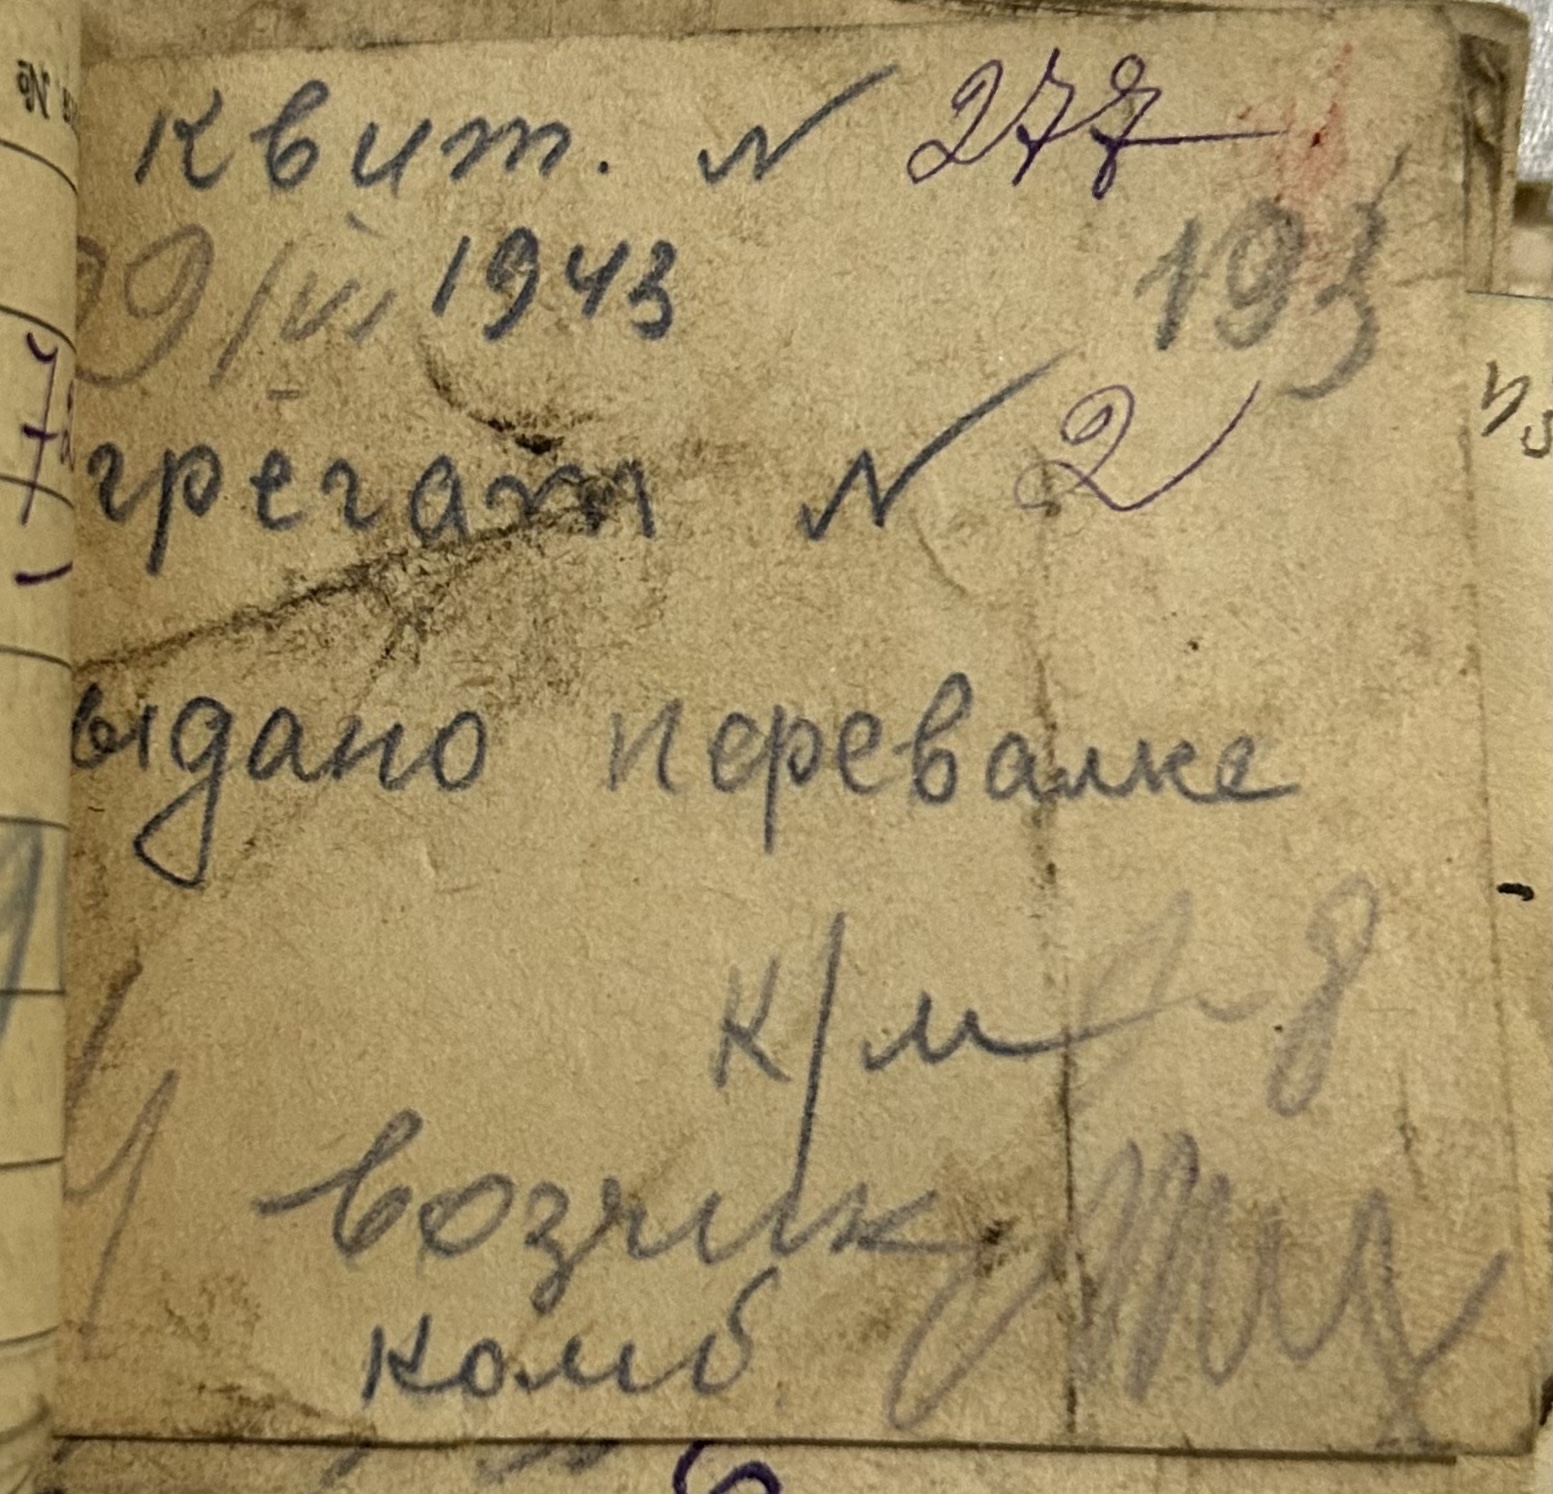 Квит. N 277
29/VII 1943 193
грегат N 2
ыдано перевалке
К/м
возчик
комб.